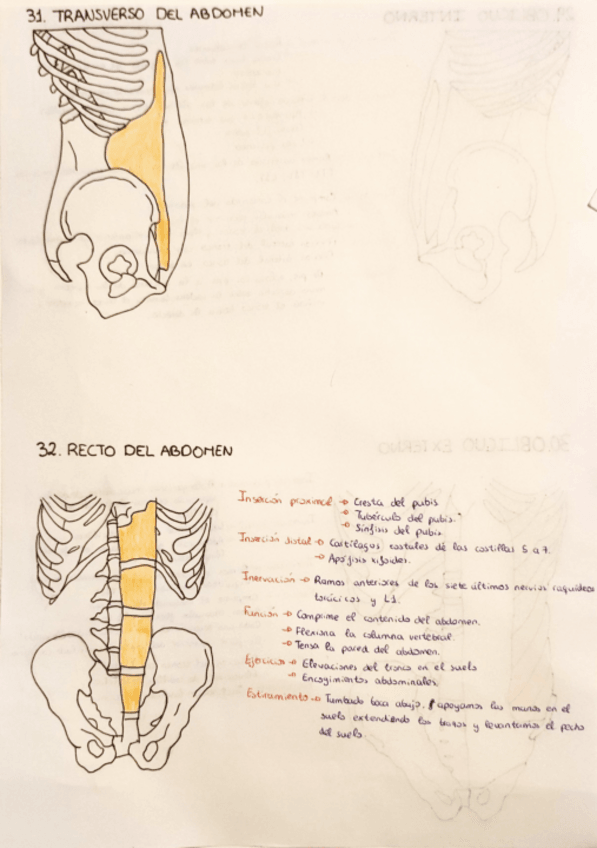 31. TRANSVERSO DEL ABDOMEN
32. RECTO DEL ABDOMEN
Inserción proximal → Cresta del pubis
→ Tubérculo del pubis.
→ Sínfisis del pubis
Inserción distal → Cartílagos costales de las costillas 5 a 7.
→ Apófisis xifoides.
Inervación → Ramos anteriores de los siete últimos nervios raquídeos
torácicos y L1.
Función → Comprime el contenido del abdomen.
→ Flexiona la columna vertebral.
→ Tensa la pared del abdomen.
Ejercicio → Elevaciones del tronco en el suelo
→ Encogimientos abdominales
Estiramiento → Tumbado boca abajo, apoyamos las manos en el
suelo extendiendo los brazos y levantamos el pecho
del suelo.
29. OBLICUO INTERNO
30. OBLICUO EXTERNO